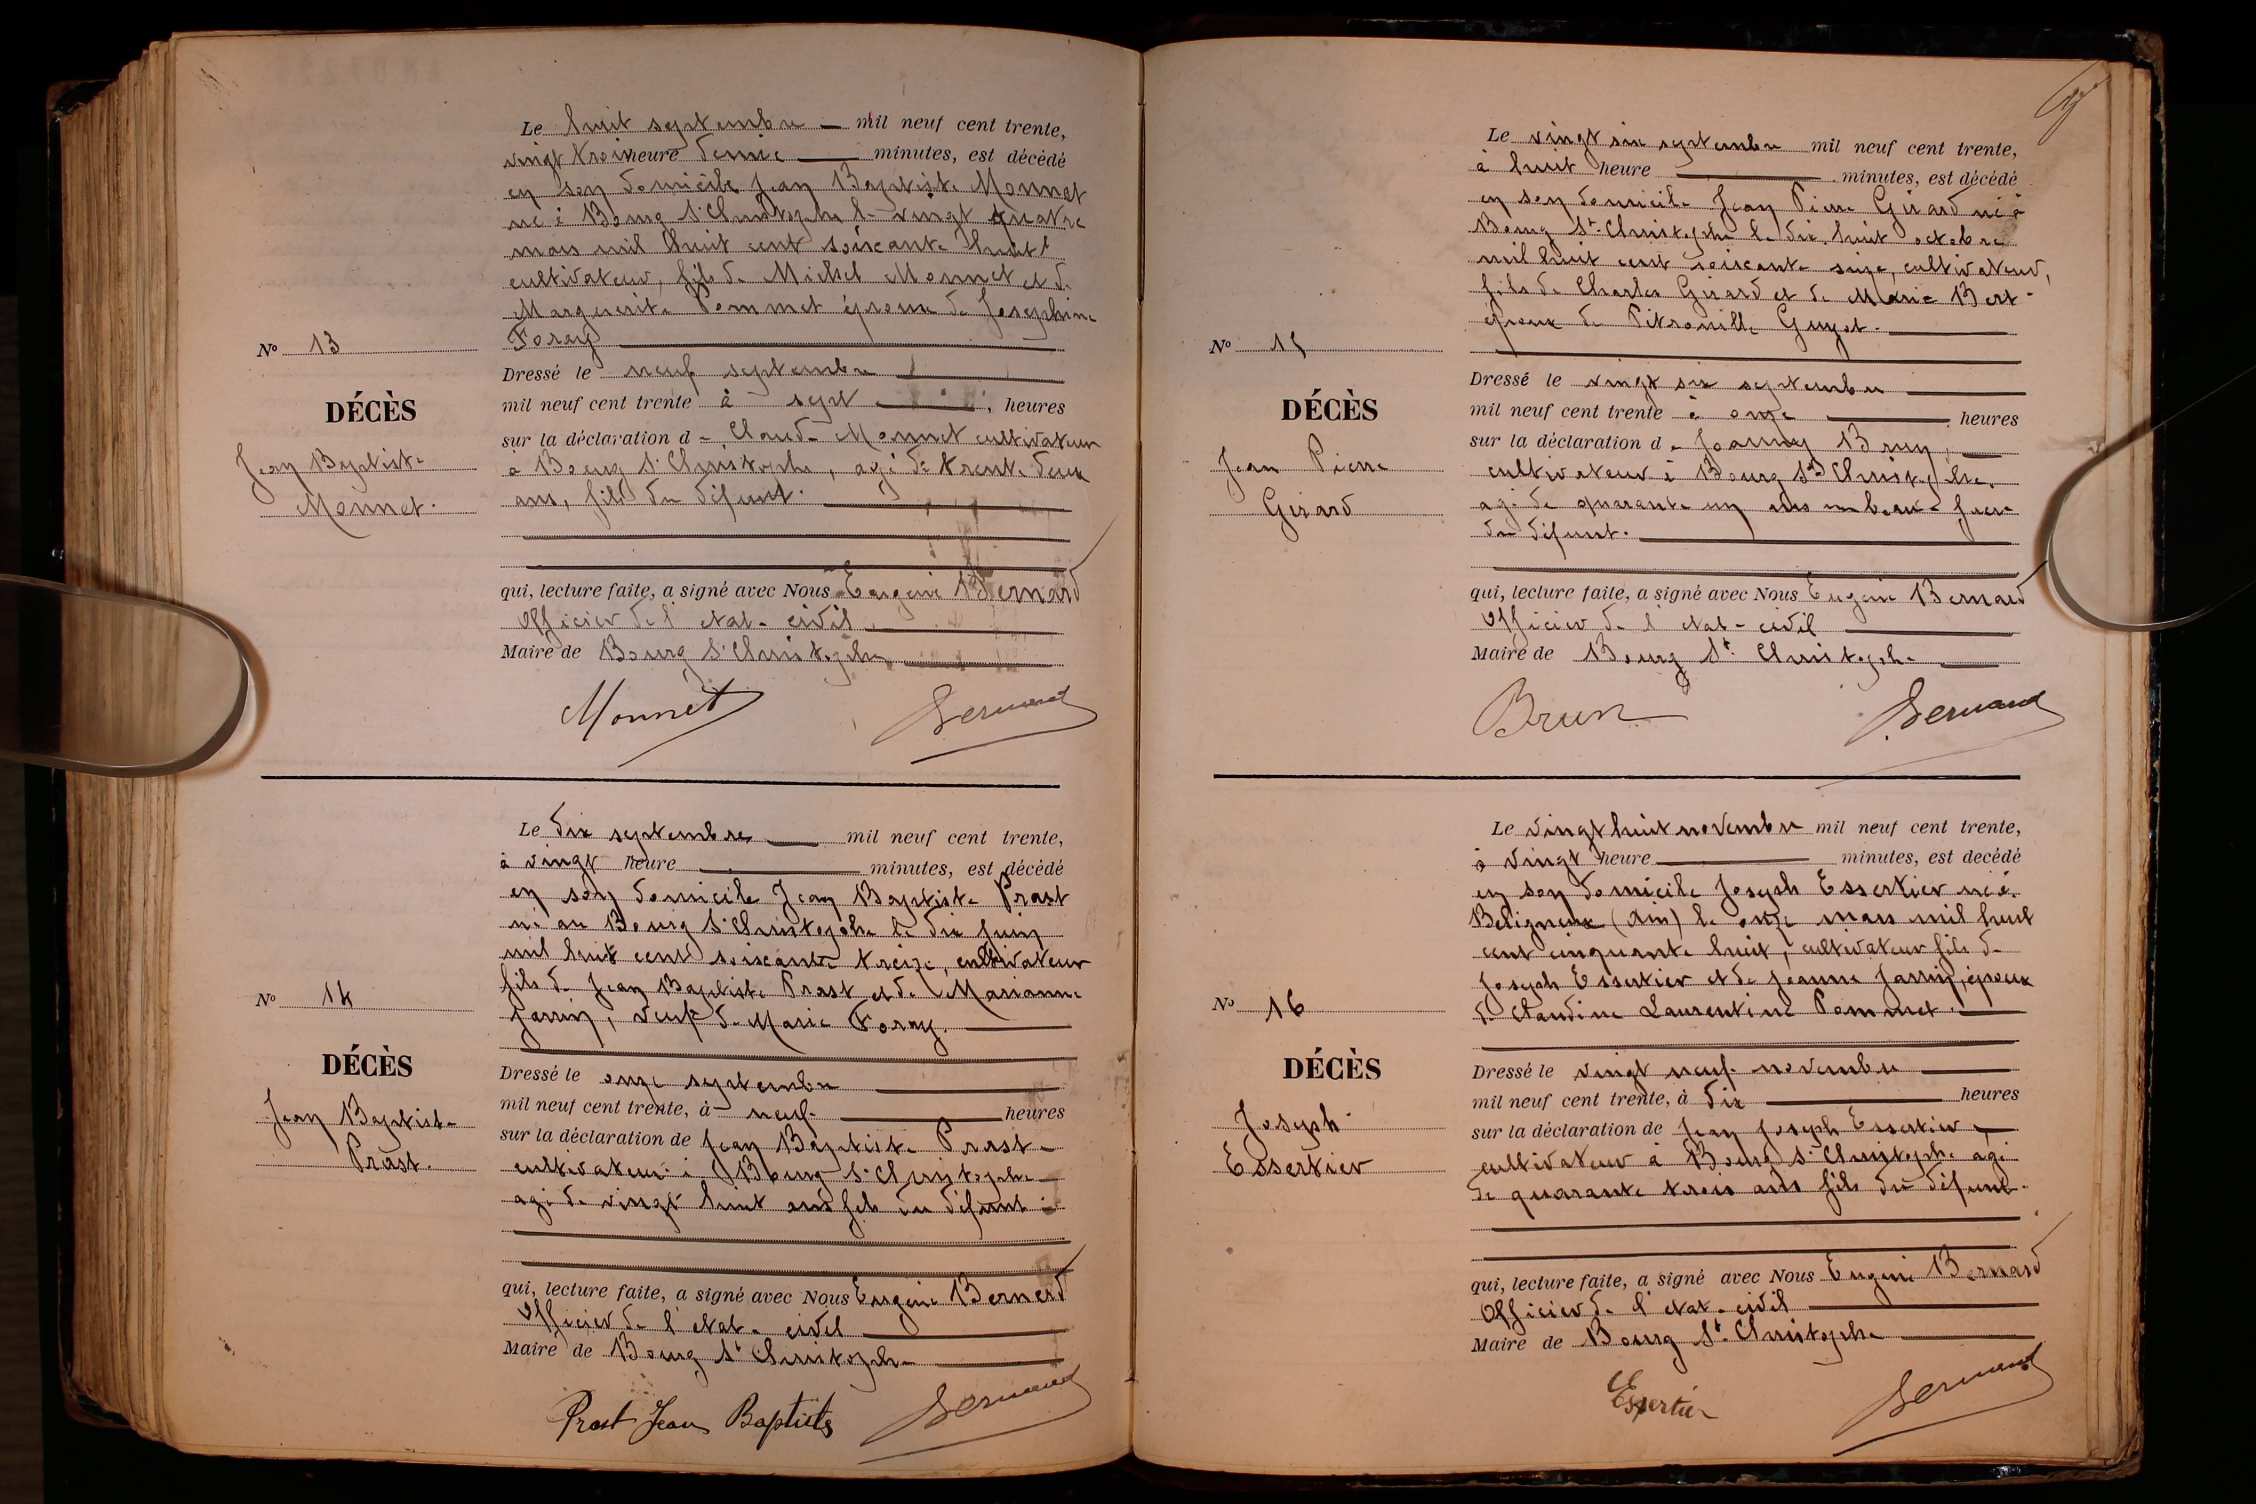 Le huit septembre — mil neuf cent trente,
vingt trois heure demie — minutes, est décédé
en son domicile Jean Baptiste Monnet
né à Bourg St Christophe le vingt quatre
mars mil huit cent soixante huit
cultivateur, fils de Michel Monnet et de
Marguerite Pommet époux de Joséphine
Foray
No 13
DÉCÈS
Jean Baptiste
Monnet.
Dressé le neuf septembre
mil neuf cent trente à sept heures
sur la déclaration de Claude Monnet cultivateur
à Bourg St Christophe, agé de trente deux
ans, fils du défunt.
qui, lecture faite, a signé avec Nous Eugène Bernard
Officier de l'etat-civil
Maire de Bourg St Christophe
Monnet Bernard
Le dix septembre — mil neuf cent trente,
à vingt heure — minutes, est décédé
en son domicile Jean Baptiste Prast
né au Bourg St Christophe le dix juin
mil huit cent soixante treize, cultivateur
fils de Jean Baptiste Prast et de Marianne
Jarrin, veuf de Marie Foray.
No 14
DÉCÈS
Jean Baptiste
Prast.
Dressé le onze septembre
mil neuf cent trente, à neuf heures
sur la déclaration de Jean Baptiste Prast
cultivateur à Bourg St Christophe
agé de vingt huit ans fils du défunt
qui, lecture faite, a signé avec Nous Eugène Bernard
Officier de l'etat-civil
Maire de Bourg St Christophe
Prost Jean Baptiste Bernard
Le vingt six septembre mil neuf cent trente,
à huit heure — minutes, est décédé
en son domicile Jean Pierre Girard né à
Bourg St Christophe le dix huit octobre
mil huit cent soixante seize, cultivateur,
fils de Charles Girard et de Marie Bert
époux de Pétronille Guyot.
No 15
DÉCÈS
Jean Pierre
Girard
Dressé le vingt six septembre
mil neuf cent trente à onze heures
sur la déclaration de Joanny Brun,
cultivateur à Bourg St Christophe,
agé de quarante un ans beau-frère
du défunt.
qui, lecture faite, a signé avec Nous Eugène Bernard
Officier de l'etat-civil
Maire de Bourg St Christophe
Brun Bernard
Le vingt huit novembre mil neuf cent trente,
à vingt heure — minutes, est decédé
en son domicile Joseph Essertier né à
Beligneux (Ain) le onze mars mil huit
cent cinquante huit, cultivateur fils de
Joseph Essertier et de Jeanne Jarrin, époux
de Claudine Laurentine Pommet.
No 16
DÉCÈS
Joseph
Essertier
Dressé le vingt neuf novembre
mil neuf cent trente, à dix heures
sur la déclaration de Jean Joseph Essertier,
cultivateur à Bourg St Christophe agé
de quarante trois ans fils du défunt.
qui, lecture faite, a signé avec Nous Eugène Bernard
Officier de l'etat-civil
Maire de Bourg St Christophe
Essertier Bernard